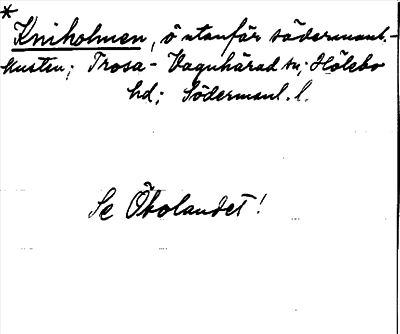 *
Kniholmen, ö utanför södermanl.-
kusten; Trosa-Vagnhärad sn; Hölebo
hd; Södermanl. l.
Se Ökolandet!